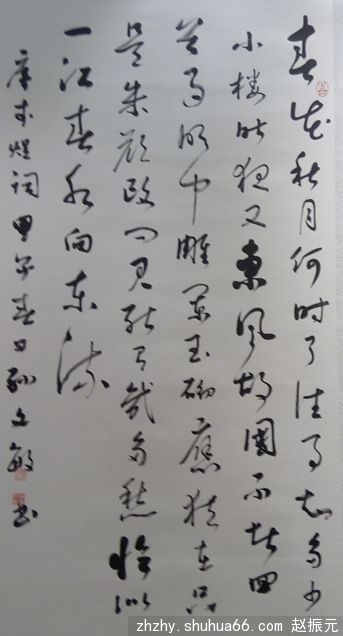 春花秋月何時了往事知多少
小楼昨夜又東風故國不堪回
首月明中雕闌玉砌應猶在只
是朱颜改问君能有幾多愁恰似
一江春水向東流
李煜詞甲午春日孙文敏书
zhzhy.shuhua66.com 赵振元